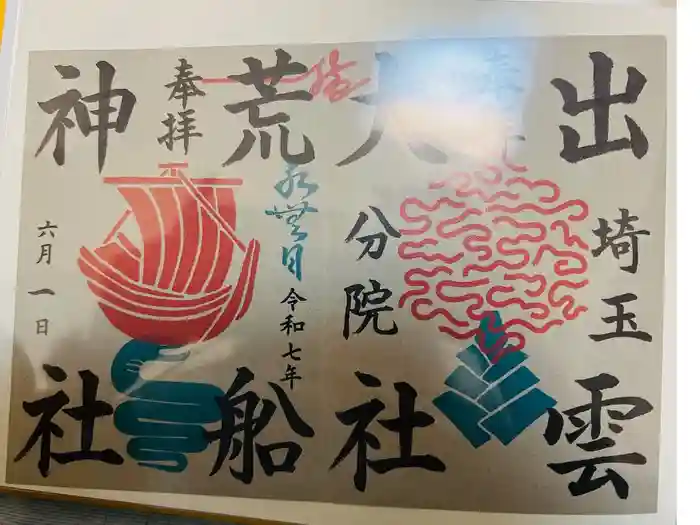 出雲
埼玉
大社
分院
荒船
水無月
令和七年
奉拝
神社
六月一日